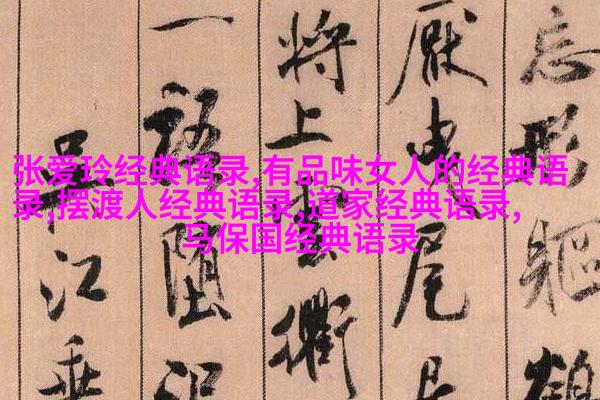 张爱玲经典语录,有品味女人的经典语
录,摆渡人经典语录,道家经典语录,
马保国经典语录
忘形軀
厭曳尾
将上衢
一語
吴江垂